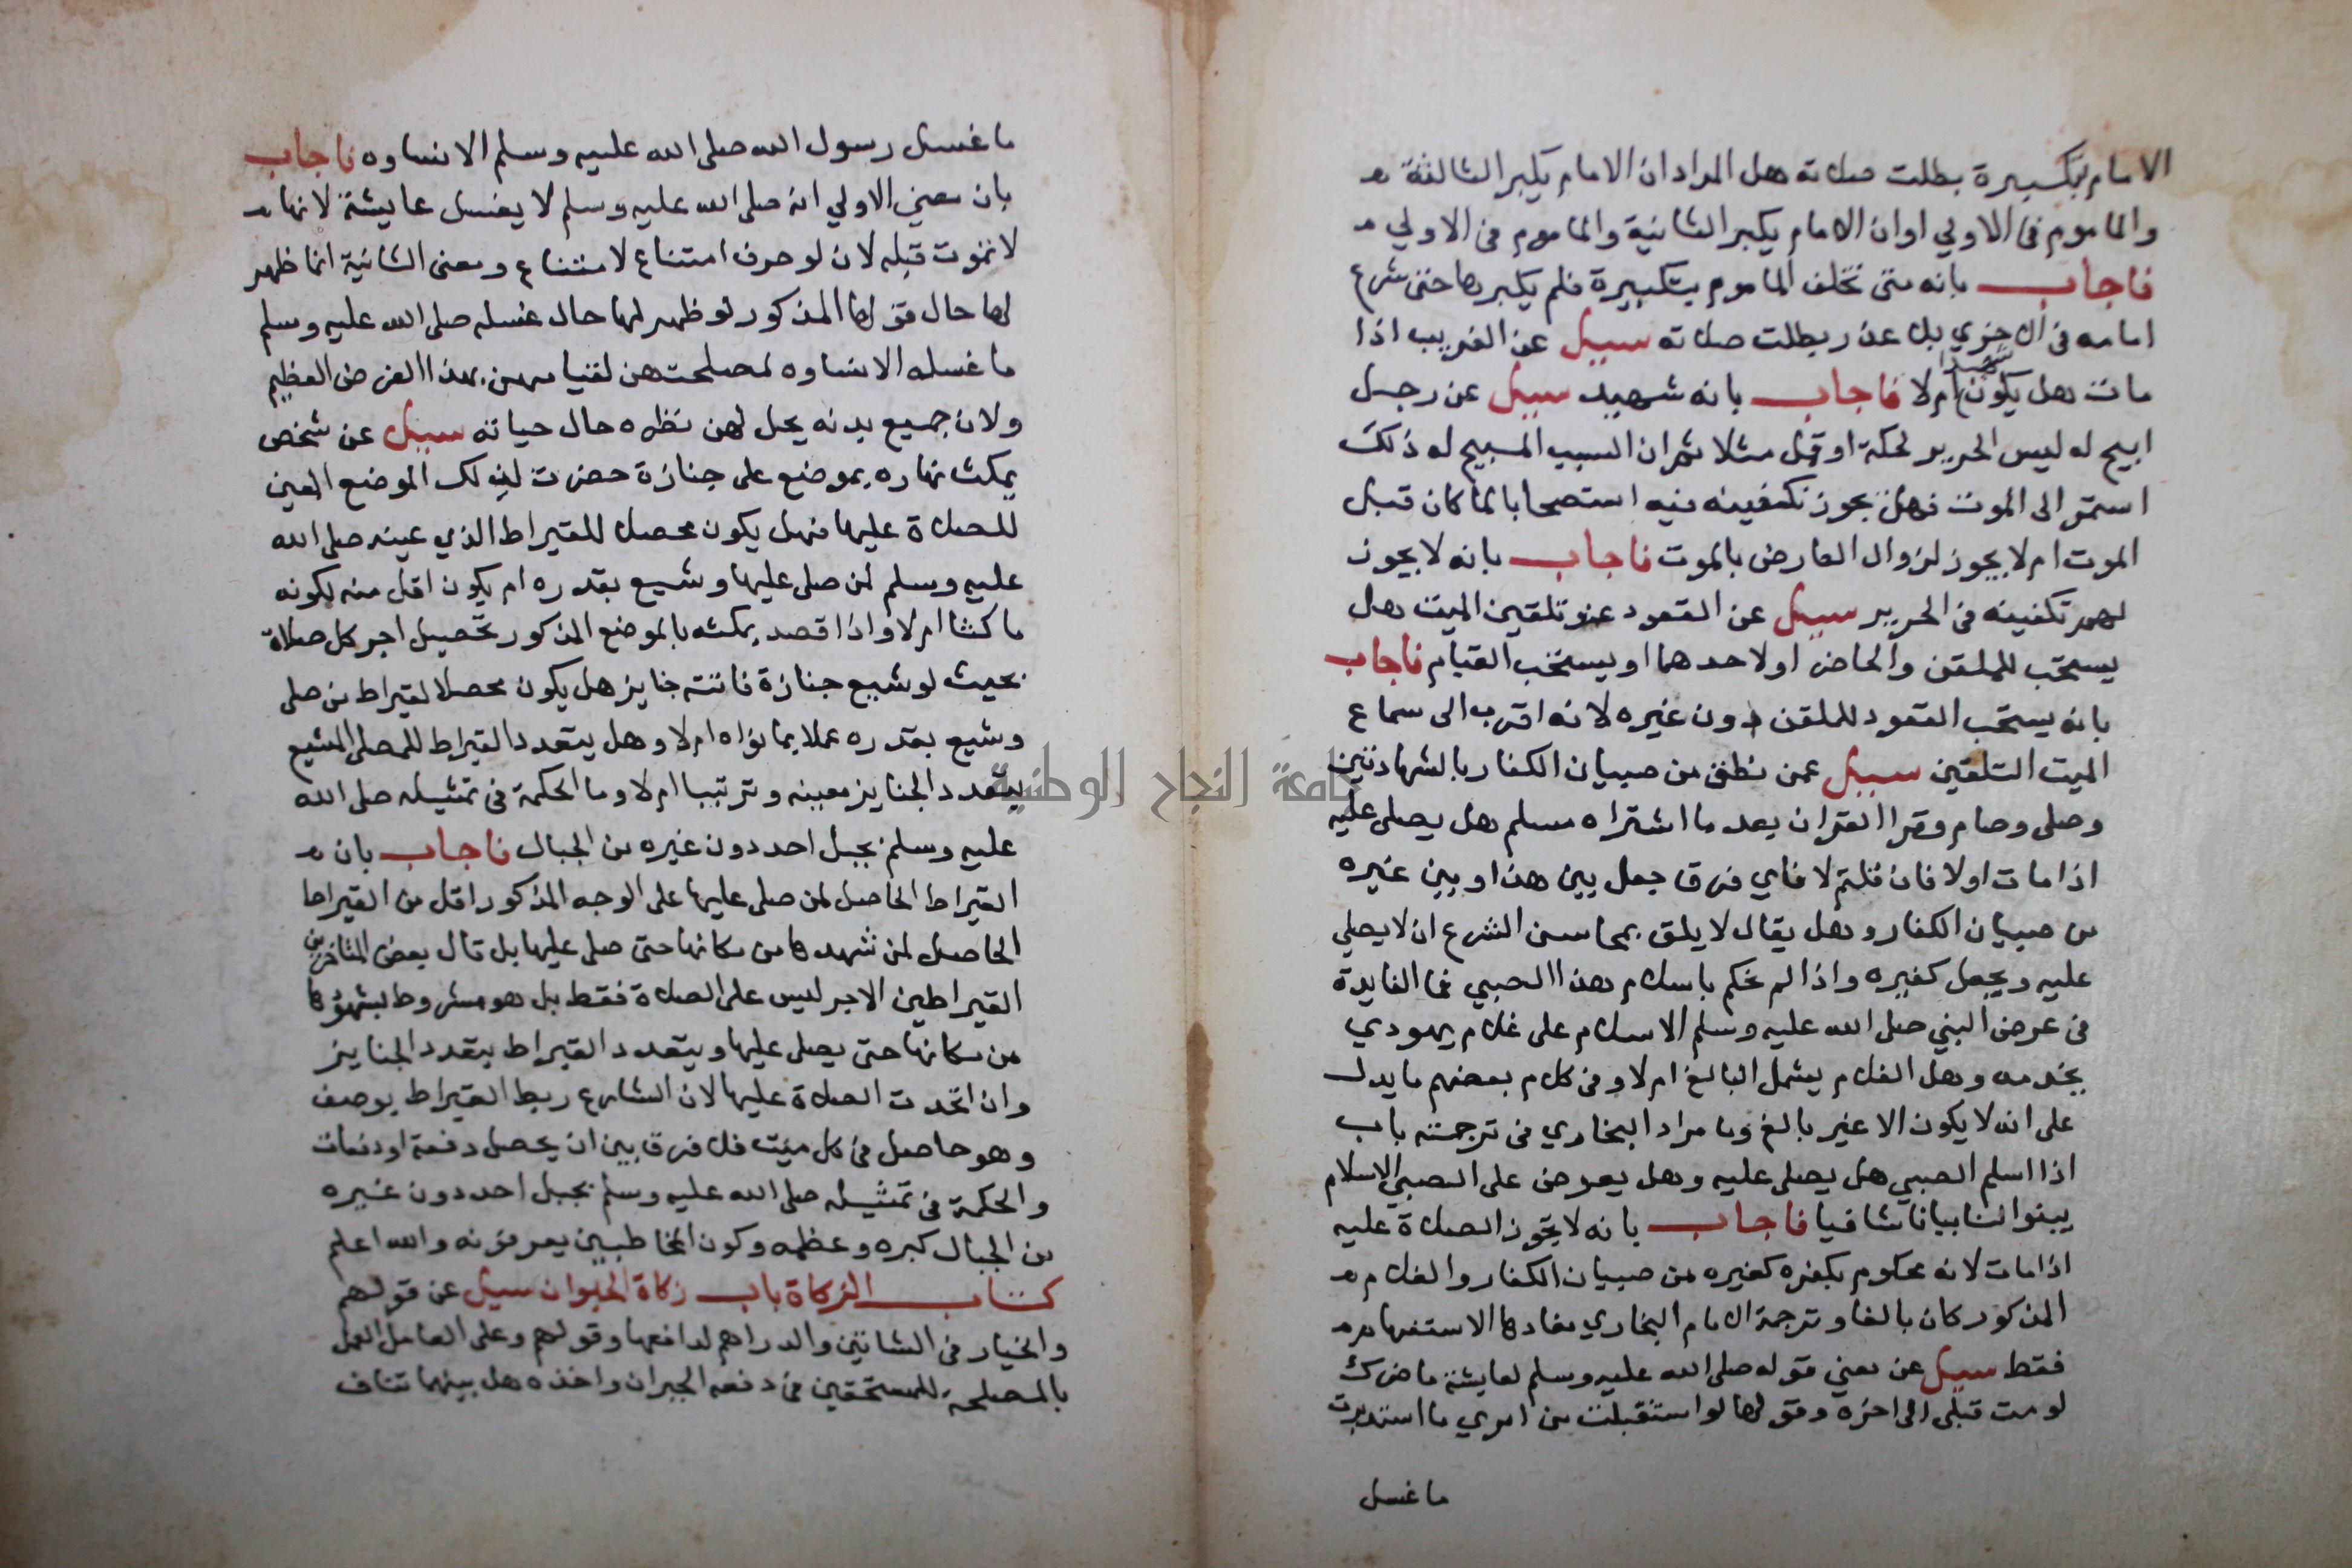 الامام بتكبيرة بطلت صلاته هل المراد ان الامام يكبر الثالثة
والماموم في الاولي او ان الامام يكبر الثانية والماموم في الاولي
فاجاب بانه متى تخلف الماموم بتكبيرة فلم يكبرها حتى شرع
امامه في الاخري بلا عذر بطلت صلاته سيل عن الغريب اذا
مات هل يكون شهيدا ام لا فاجاب بانه شهيد سيل عن رجل
ابيح له لبس الحرير لحكة او قمل مثلا ثم ان السبب المبيح له ذلك
استمر الى الموت فهل يجوز تكفينه فيه استصحابا لما كان قبل
الموت ام لا يجوز لزوال العارض بالموت فاجاب بانه لا يجوز
لهم تكفينه في الحرير سيل عن القعود عند تلقين الميت هل
يستحب للملقن والحاضر او لاحدهما او يستحب القيام فاجاب
بانه يستحب القعود للملقن دون غيره لانه اقرب الى سماع
الميت التلقين سيل عمن نطق من صبيان الكفار بالشهادتين
وصلى وصام وقرا القران بعد ما اشتراه مسلم هل يصلى عليه
اذا مات اولا فان قلتم لا فاي فرق جعل بين هذا وبين غيره
من صبيان الكفار وهل يقال لا يلق بمحاسن الشرع ان لا يصلي
عليه ويجعل كغيره واذا لم نحكم باسلام هذا الصبي فما الفايدة
في عرض النبي صلى الله عليه وسلم الاسلام على غلام يهودي
يخدمه وهل الغلام يشمل البالغ ام لا وفي كلام بعضهم ما يدل
على انه لا يكون الا غير بالغ وما مراد البخاري في ترجمته باب
اذا اسلم الصبي هل يصلى عليه وهل يعرض على الصبي الاسلام
بينوا لنا بيانا شافيا فاجاب بانه لا تجوز الصلاة عليه
اذا مات لانه محكوم بكفره كغيره من صبيان الكفار والغلام
المذكور كان بالغا وترجمة الامام البخاري مفادها الاستفهام
فقط سيل عن معني قوله صلى الله عليه وسلم لعايشة ما ضرك
لو مت قبلي الى اخره وقولها لو استقبلت من امري ما استدبرت
ما غسل
ما غسل رسول الله صلى الله عليه وسلم الا نساوه فاجاب
بان معني الاولي انه صلى الله عليه وسلم لا يغسل عايشة لانها
لا تموت قبله لان لو حرف امتناع لامتناع ومعنى الثانية انما ظهر
لها حال قولها المذكور لو ظهر لها حال غسله صلى الله عليه وسلم
ما غسله الا نساوه لمصلحتهن لقيامهن بهذا الغرض العظيم
ولان جميع بدنه يحل لهن نظره حال حياته سيل عن شخص
يمكث نهاره بموضع على جنازة حضرت لذلك الموضع المعين
للصلاة عليها فهل يكون محصلا للقيراط الذي عينه صلى الله
عليه وسلم لمن صلى عليها وشيع بقدره ام يكون اقل منه لكونه
ماكثا ام لا واذا قصد بمكثه بالموضع المذكور تحصيل اجر كل صلاة
بحيث لو شيع جنازة فاتته جنايز هل يكون محصلا لقيراط من صلى
وشيع بقدره عملا بما نواه ام لا وهل يتعدد القيراط للمصلي المشيع
بتعدد الجنايز معينه وترتيبا ام لا وما الحكمة في تمثيله صلى الله
عليه وسلم بجبل احد دون غيره من الجبال فاجاب بان
القيراط الحاصل لمن صلى عليها على الوجه المذكور اقل من القيراط
الحاصل لمن شهدها من مكانها حتى صلى عليها بل قال بعض المتاخرين
القيراطين الاجر ليس على الصلاة فقط بل هو مشروط بشهودها
من مكانها حتى يصلى عليها ويتعدد القيراط بتعدد الجنايز
وان اتحدت الصلاة عليها لان الشارع ربط القيراط بوصف
وهو حاصل في كل ميت فلا فرق بين ان يحصل دفعة او دفعات
والحكمة في تمثيله صلى الله عليه وسلم بجبل احد دون غيره
من الجبال كبره وعظمه وكون المخاطبين يعرفونه والله اعلم
كتاب الزكاة باب زكاة الحيوان سيل عن قولهم
والخيار في الشاتين والدراهم لدافعها وقولهم وعلى العامل العمل
بالمصلحة للمستحقين في دفعه الجبران واخذه هل بينهما تناف
جامعة النجاح الوطنية